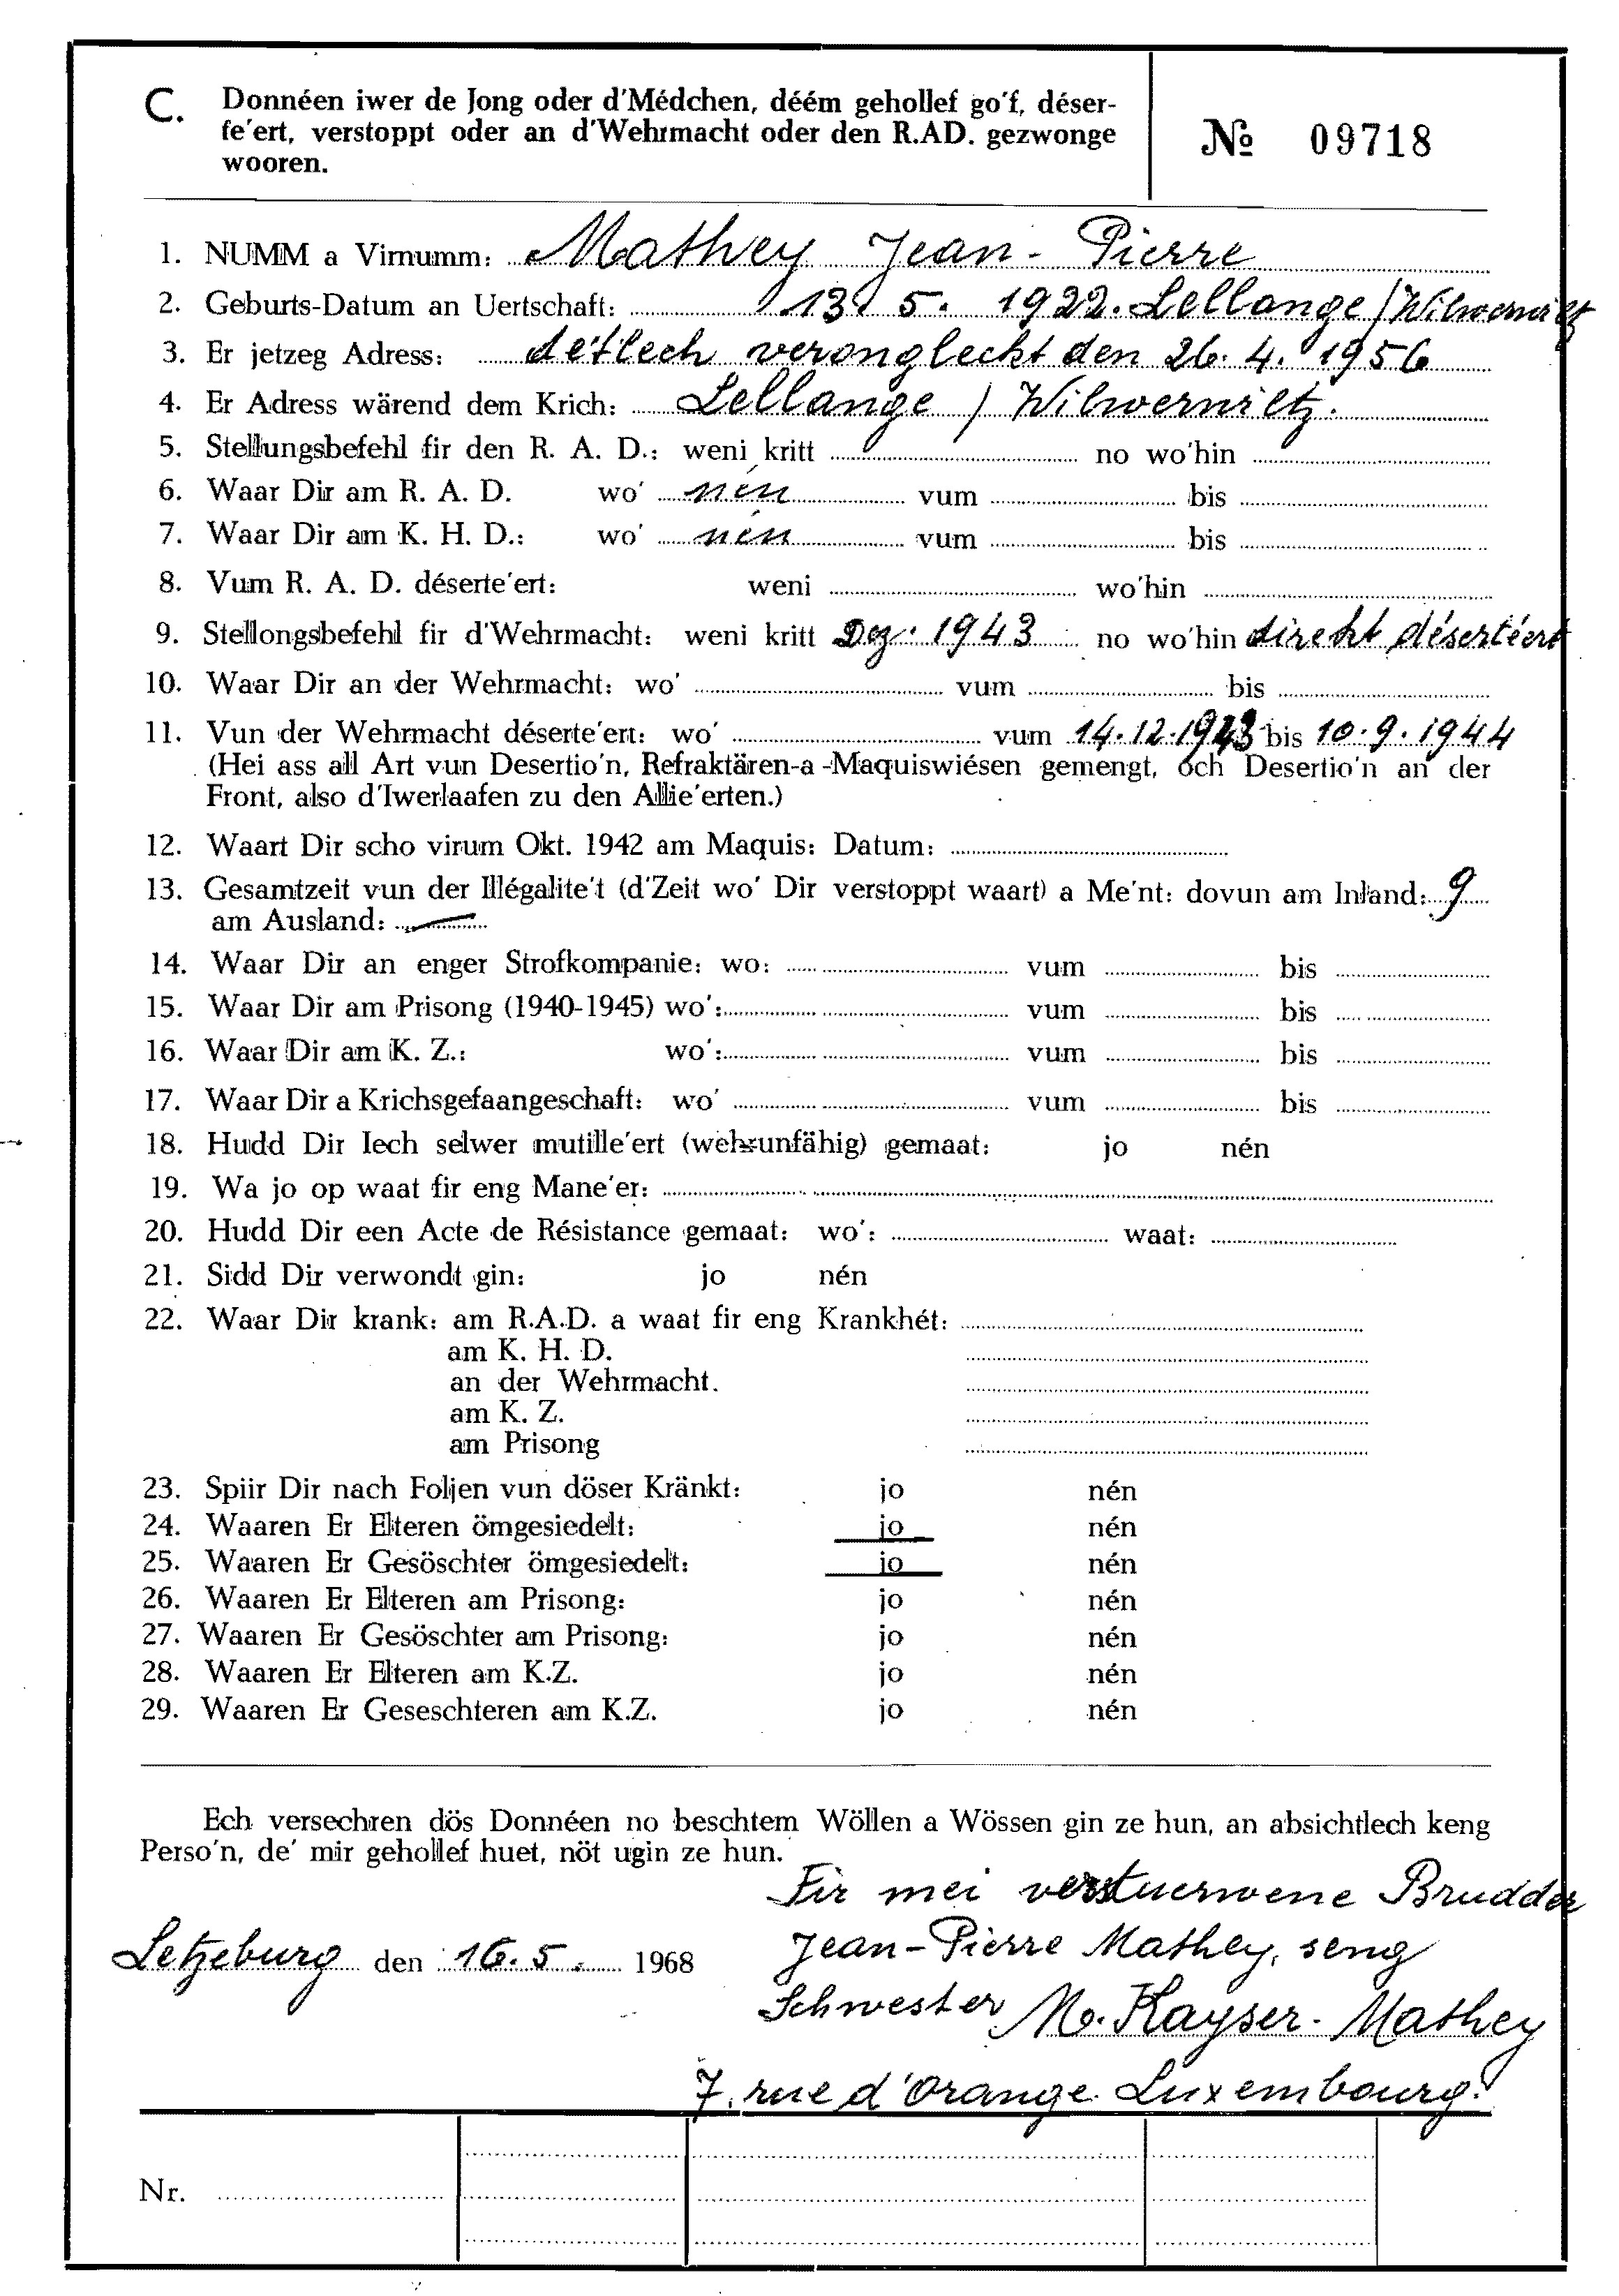 C. Donnéen iwer de Jong oder d'Médchen, déém gehollef go'f, déser-
fe'ert, verstoppt oder an d'Wehrmacht oder den R.AD. gezwonge
wooren.
№ 09718
1. NUMM a Virnumm: Mathey Jean-Pierre
2. Geburts-Datum an Uertschaft: 13. 5. 1922. Lellange / Wilwerwiltz
3. Er jetzeg Adress: détlech verongleckt den 26. 4. 1956
4. Er Adress wärend dem Krich: Lellange / Wilwerwiltz.
5. Stellungsbefehl fir den R. A. D.: weni kritt no wo'hin
6. Waar Dir am R. A. D. wo' nén vum bis
7. Waar Dir am K. H. D.: wo' nén vum bis
8. Vum R. A. D. déserte'ert: weni wo'hin
9. Stellongsbefehl fir d'Wehrmacht: weni kritt Dez. 1943 no wo'hin direkt désertéert
10. Waar Dir an der Wehrmacht: wo' vum bis
11. Vun der Wehrmacht déserte'ert: wo' vum 14.12.1943 bis 10.9.1944
(Hei ass all Art vun Desertio'n, Refraktären-a -Maquiswiésen gemengt, och Desertio'n an der
Front, also d'Iwerlaafen zu den Allie'erten.)
12. Waart Dir scho virum Okt. 1942 am Maquis: Datum:
13. Gesamtzeit vun der Illégalite't (d'Zeit wo' Dir verstoppt waart) a Me'nt: dovun am Inland: 9
am Ausland: —
14. Waar Dir an enger Strofkompanie: wo: vum bis
15. Waar Dir am Prisong (1940-1945) wo': vum bis
16. Waar Dir am K. Z.: wo': vum bis
17. Waar Dir a Krichsgefaangeschaft: wo' vum bis
18. Hudd Dir Iech selwer mutille'ert (wehrunfähig) gemaat: jo nén
19. Wa jo op waat fir eng Mane'er:
20. Hudd Dir een Acte de Résistance gemaat: wo': waat:
21. Sidd Dir verwondt gin: jo nén
22. Waar Dir krank: am R.A.D. a waat fir eng Krankhét:
am K. H. D.
an der Wehrmacht.
am K. Z.
am Prisong
23. Spiir Dir nach Foljen vun döser Kränkt: jo nén
24. Waaren Er Elteren ömgesiedelt: jo nén
25. Waaren Er Gesöschter ömgesiedelt: jo nén
26. Waaren Er Elteren am Prisong: jo nén
27. Waaren Er Gesöschter am Prisong: jo nén
28. Waaren Er Elteren am K.Z. jo nén
29. Waaren Er Geseschteren am K.Z. jo nén
Ech versechren dös Donnéen no beschtem Wöllen a Wössen gin ze hun, an absichtlech keng
Perso'n, de' mir gehollef huet, nöt ugin ze hun.
Fir mei verstuerwene Brudder
Jean-Pierre Mathey, seng
Letzeburg den 16. 5. 1968
Schwester M. Kayser-Mathey
7, rue d'Orange Luxembourg.
Nr.